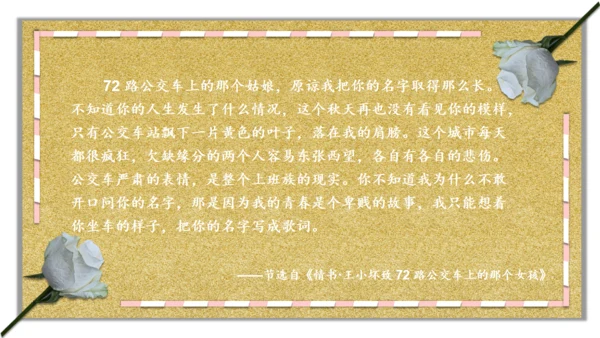 72 路公交车上的那个姑娘，原谅我把你的名字取得那么长。
不知道你的人生发生了什么情况，这个秋天再也没有看见你的模样，
只有公交车站飘下一片黄色的叶子，落在我的肩膀。这个城市每天
都很疯狂，欠缺缘分的两个人容易东张西望，各自有各自的悲伤。
公交车严肃的表情，是整个上班族的现实。你不知道我为什么不敢
开口问你的名字，那是因为我的青春是个卑贱的故事，我只能想着
你坐车的样子，把你的名字写成歌词。
——节选自《情书·王小坏致 72 路公交车上的那个女孩》